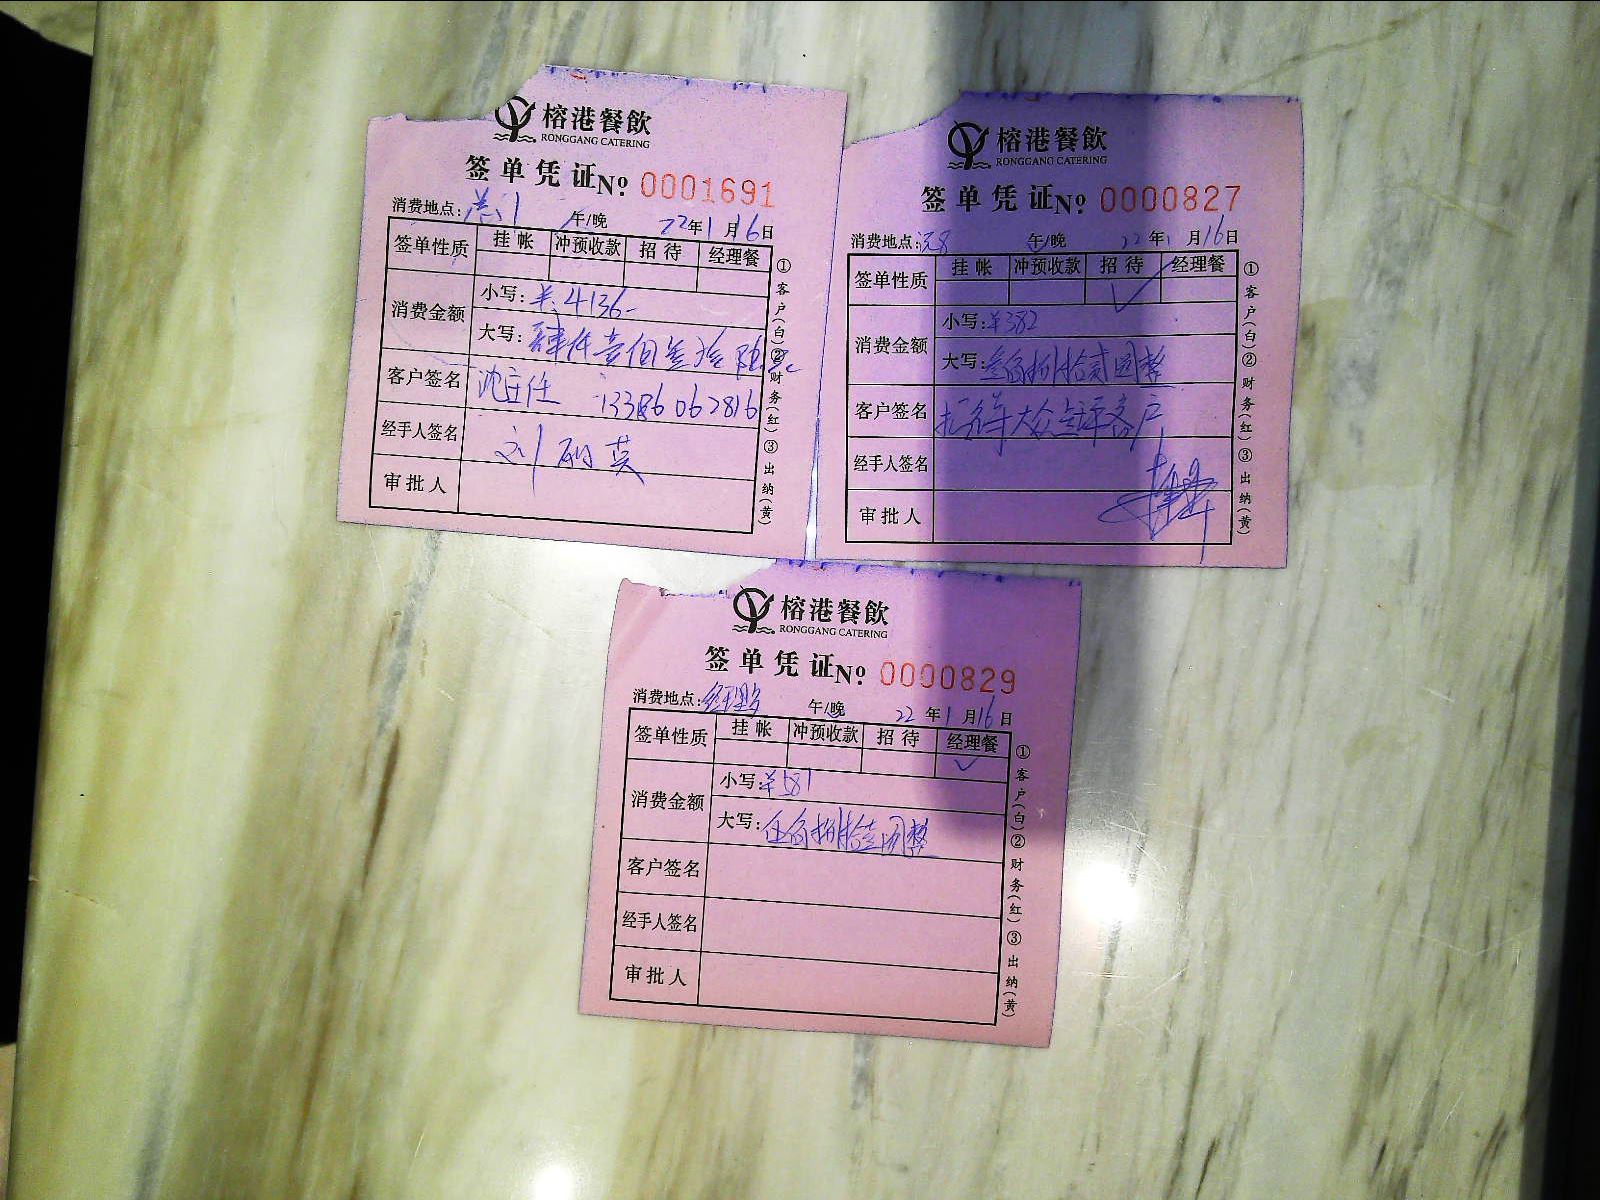 榕港餐飲
RONGGANG CATERING
签单凭证№ 0001691
消费地点: 午/晚 22年1月16日
签单性质 挂帐 冲预收款 招待 经理餐
消费金额 小写: ¥4136-
大写: 肆仟壹佰叁拾陆元
客户签名 沈主任 13386062816
经手人签名 刘丽英
审批人
①客户(白)②财务(红)③出纳(黄)
榕港餐飲
RONGGANG CATERING
签单凭证№ 0000827
消费地点: 午/晚 22年1月16日
签单性质 挂帐 冲预收款 招待 经理餐
消费金额 小写: ¥382
大写: 叁佰捌拾贰圆整
客户签名 大众点评客户
经手人签名
审批人
①客户(白)②财务(红)③出纳(黄)
榕港餐飲
RONGGANG CATERING
签单凭证№ 0000829
消费地点: 午/晚 22年1月16日
签单性质 挂帐 冲预收款 招待 经理餐
消费金额 小写: ¥581
大写: 伍佰捌拾壹圆整
客户签名
经手人签名
审批人
①客户(白)②财务(红)③出纳(黄)